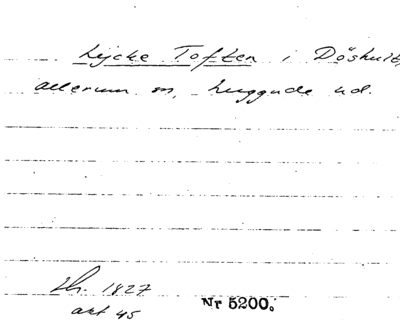 Lycke Toften i Döshult,
allerum sn, Luggude hd.
Lh. 1827
akt 45
Nr 5200.